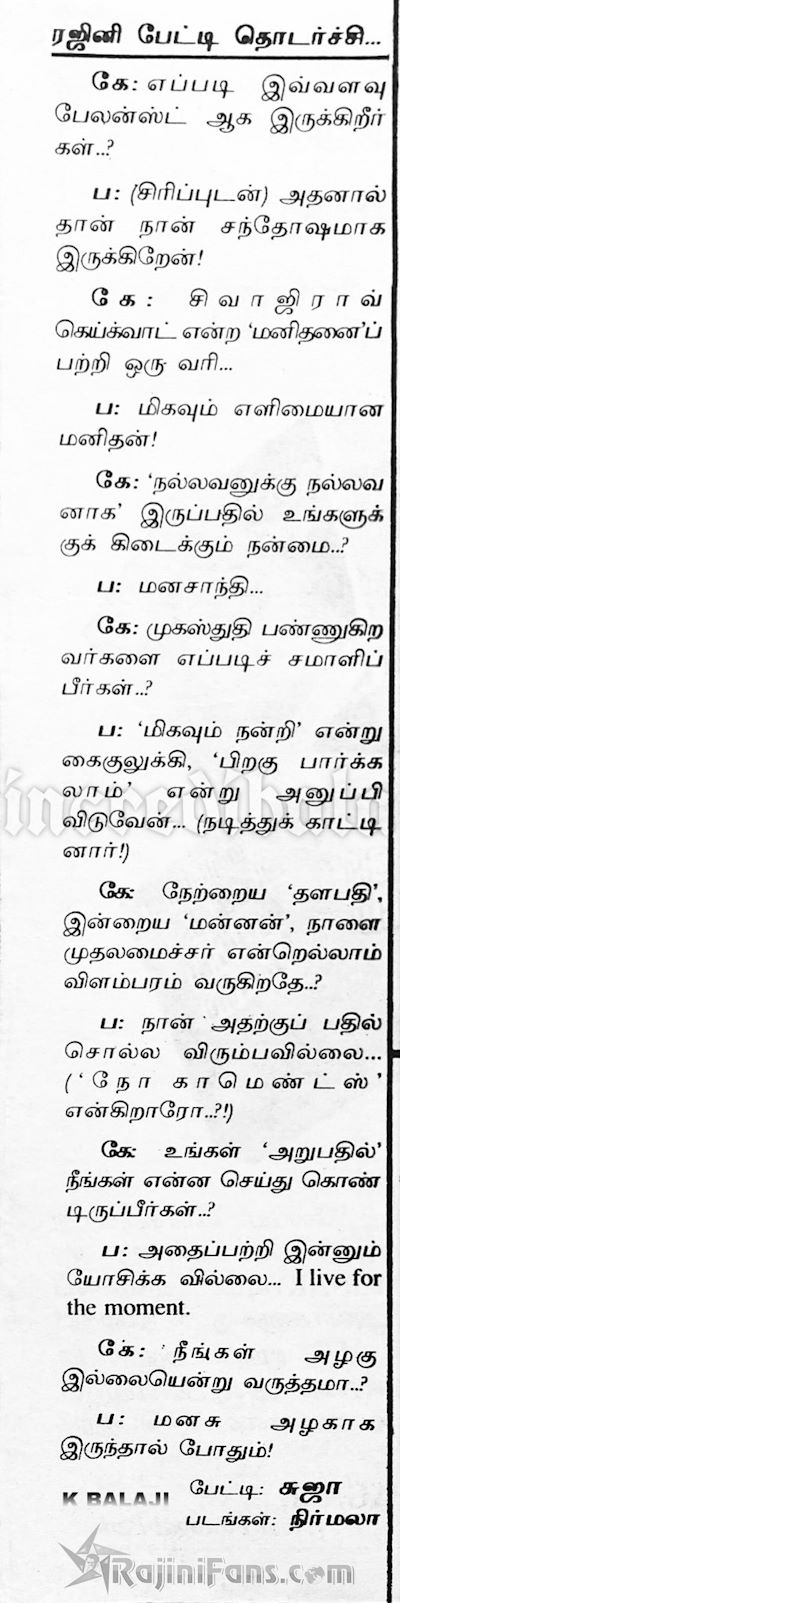 ரஜினி பேட்டி தொடர்ச்சி...
கே: எப்படி இவ்வளவு
பேலன்ஸ்ட் ஆக இருக்கிறீர்
கள்..?
ப: (சிரிப்புடன்) அதனால்
தான் நான் சந்தோஷமாக
இருக்கிறேன்!
கே: சிவாஜிராவ்
கெய்க்வாட் என்ற ‘மனிதனை’ப்
பற்றி ஒரு வரி...
ப: மிகவும் எளிமையான
மனிதன்!
கே: ‘நல்லவனுக்கு நல்லவ
னாக’ இருப்பதில் உங்களுக்
குக் கிடைக்கும் நன்மை..?
ப: மனசாந்தி...
கே: முகஸ்துதி பண்ணுகிற
வர்களை எப்படிச் சமாளிப்
பீர்கள்..?
ப: ‘மிகவும் நன்றி’ என்று
கைகுலுக்கி, ‘பிறகு பார்க்க
லாம்’ என்று அனுப்பி
விடுவேன்... (நடித்துக் காட்டி
னார்!)
கே: நேற்றைய ‘தளபதி’,
இன்றைய ‘மன்னன்’, நாளை
முதலமைச்சர் என்றெல்லாம்
விளம்பரம் வருகிறதே..?
ப: நான் அதற்குப் பதில்
சொல்ல விரும்பவில்லை...
(‘நோ காமெண்ட்ஸ்’
என்கிறாரோ..?!)
கே: உங்கள் ‘அறுபதில்’
நீங்கள் என்ன செய்து கொண்
டிருப்பீர்கள்..?
ப: அதைப்பற்றி இன்னும்
யோசிக்க வில்லை... I live for
the moment.
கே: நீங்கள் அழகு
இல்லையென்று வருத்தமா..?
ப: மனசு அழகாக
இருந்தால் போதும்!
பேட்டி: சுஜா
K BALAJI
படங்கள்: நிர்மலா
RajiniFans.com